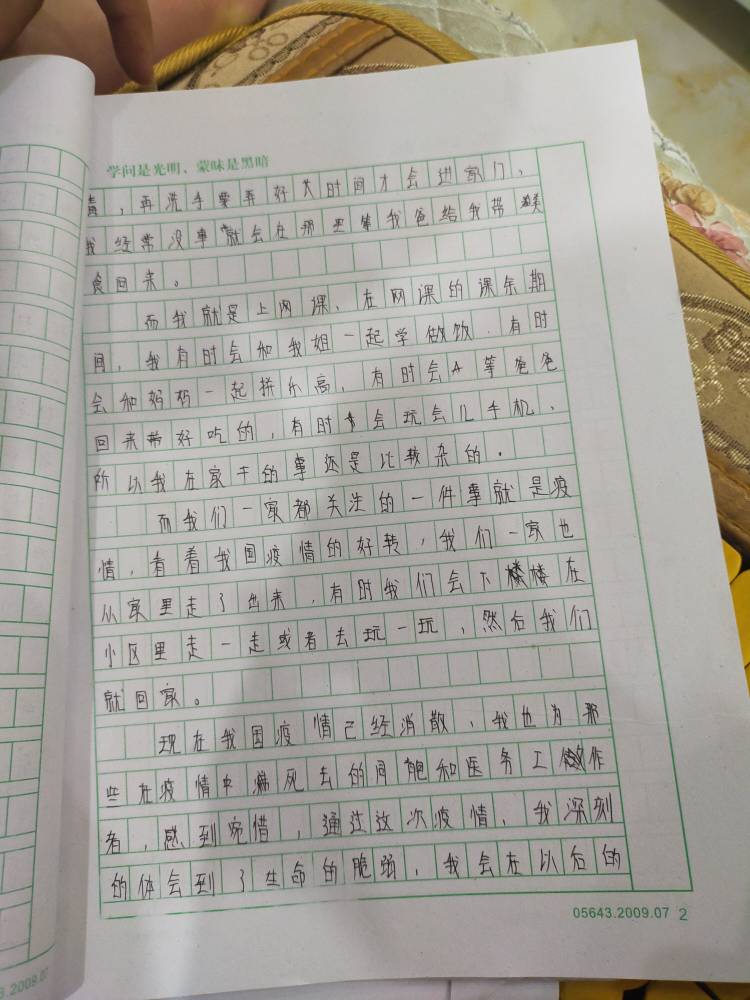 学问是光明、蒙昧是黑暗
毒，再洗手要弄好大时间才会进家门，
我经常没事就会在那里等我爸给我带美
食回来。
而我就是上网课、在网课的课余期
间，我有时会和我姐一起学做饮．有时
会和妈妈一起拼乐高、有时会等爸爸
回来带好吃的，有时会玩会儿手机、
所以我在家干的事还是比较杂的．
而我们一家都关注的一件事就是疫
情，看着我国疫情的好转，我们一家也
从家里走了出来．有时我们会下楼在
小区里走一走或者去玩一玩，然后我们
就回家。
现在我国疫情已经消散、我也为那
些在疫情中病死去的同胞和医务工作
者，感到惋惜，通过这次疫情、我深刻
的体会到了生命的脆弱，我会在以后的
05643.2009.07 2
3.2009.07